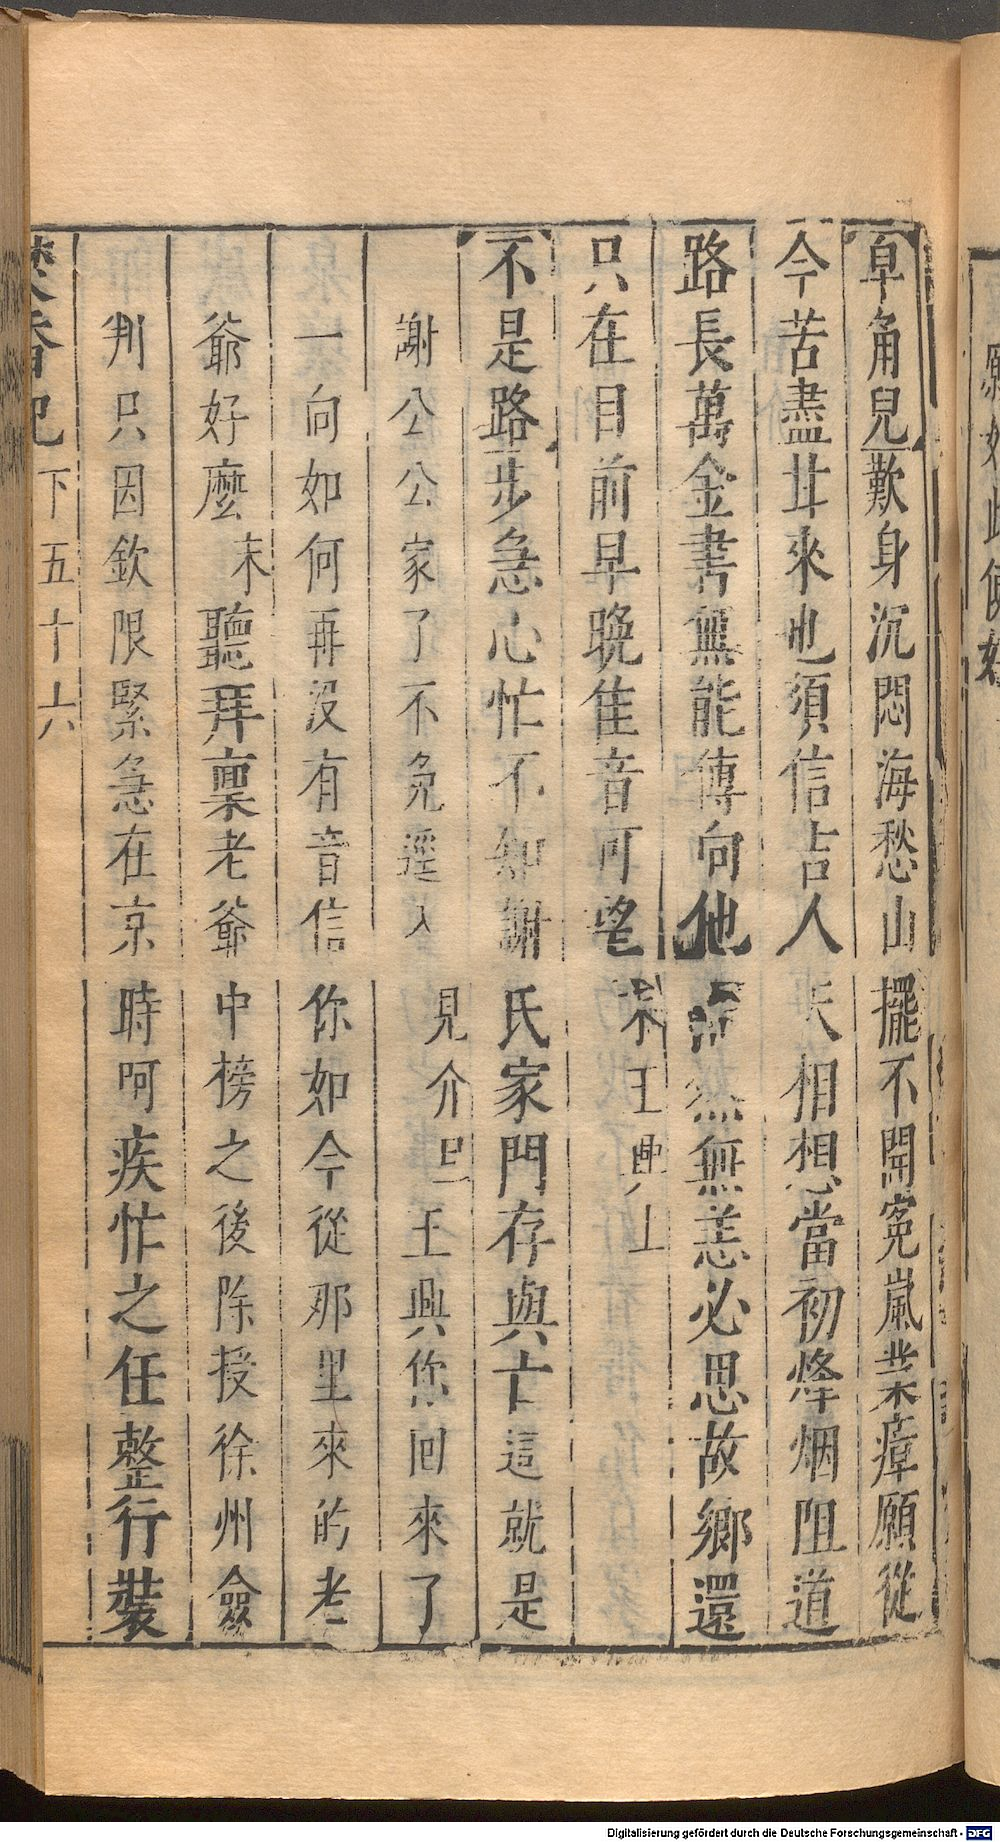 皁角兒歎身沉悶海愁山擺不開寃嵐業瘴願從
今苦盡甘來也須信吉人天相想當初烽烟阻道
路長萬金書無能傳向他若無恙必思故鄉還
只在目前早晚佳音可望末王興上
不是路步急心忙不知謝氏家門存與亡這就是
謝公公家了不免逕入見介旦王興您回來了
一向如何再没有音信你如今從那里來的老
爺好麽末聽拜稟老爺中榜之後除授徐州僉
判只因欽限緊急在京時呵疾忙之任整行裝
焚香記下五十六
Digitalisierung gefördert durch die Deutsche Forschungsgemeinschaft - DFG